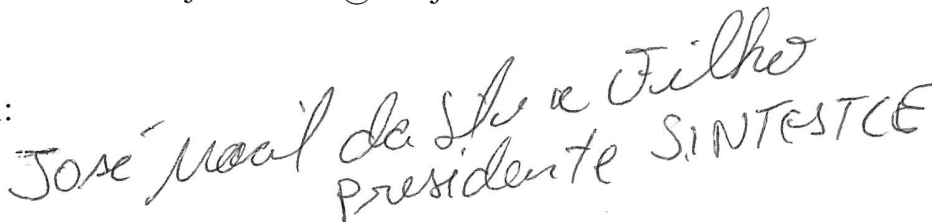 José da Silva Filho
presidente SINTESTCE